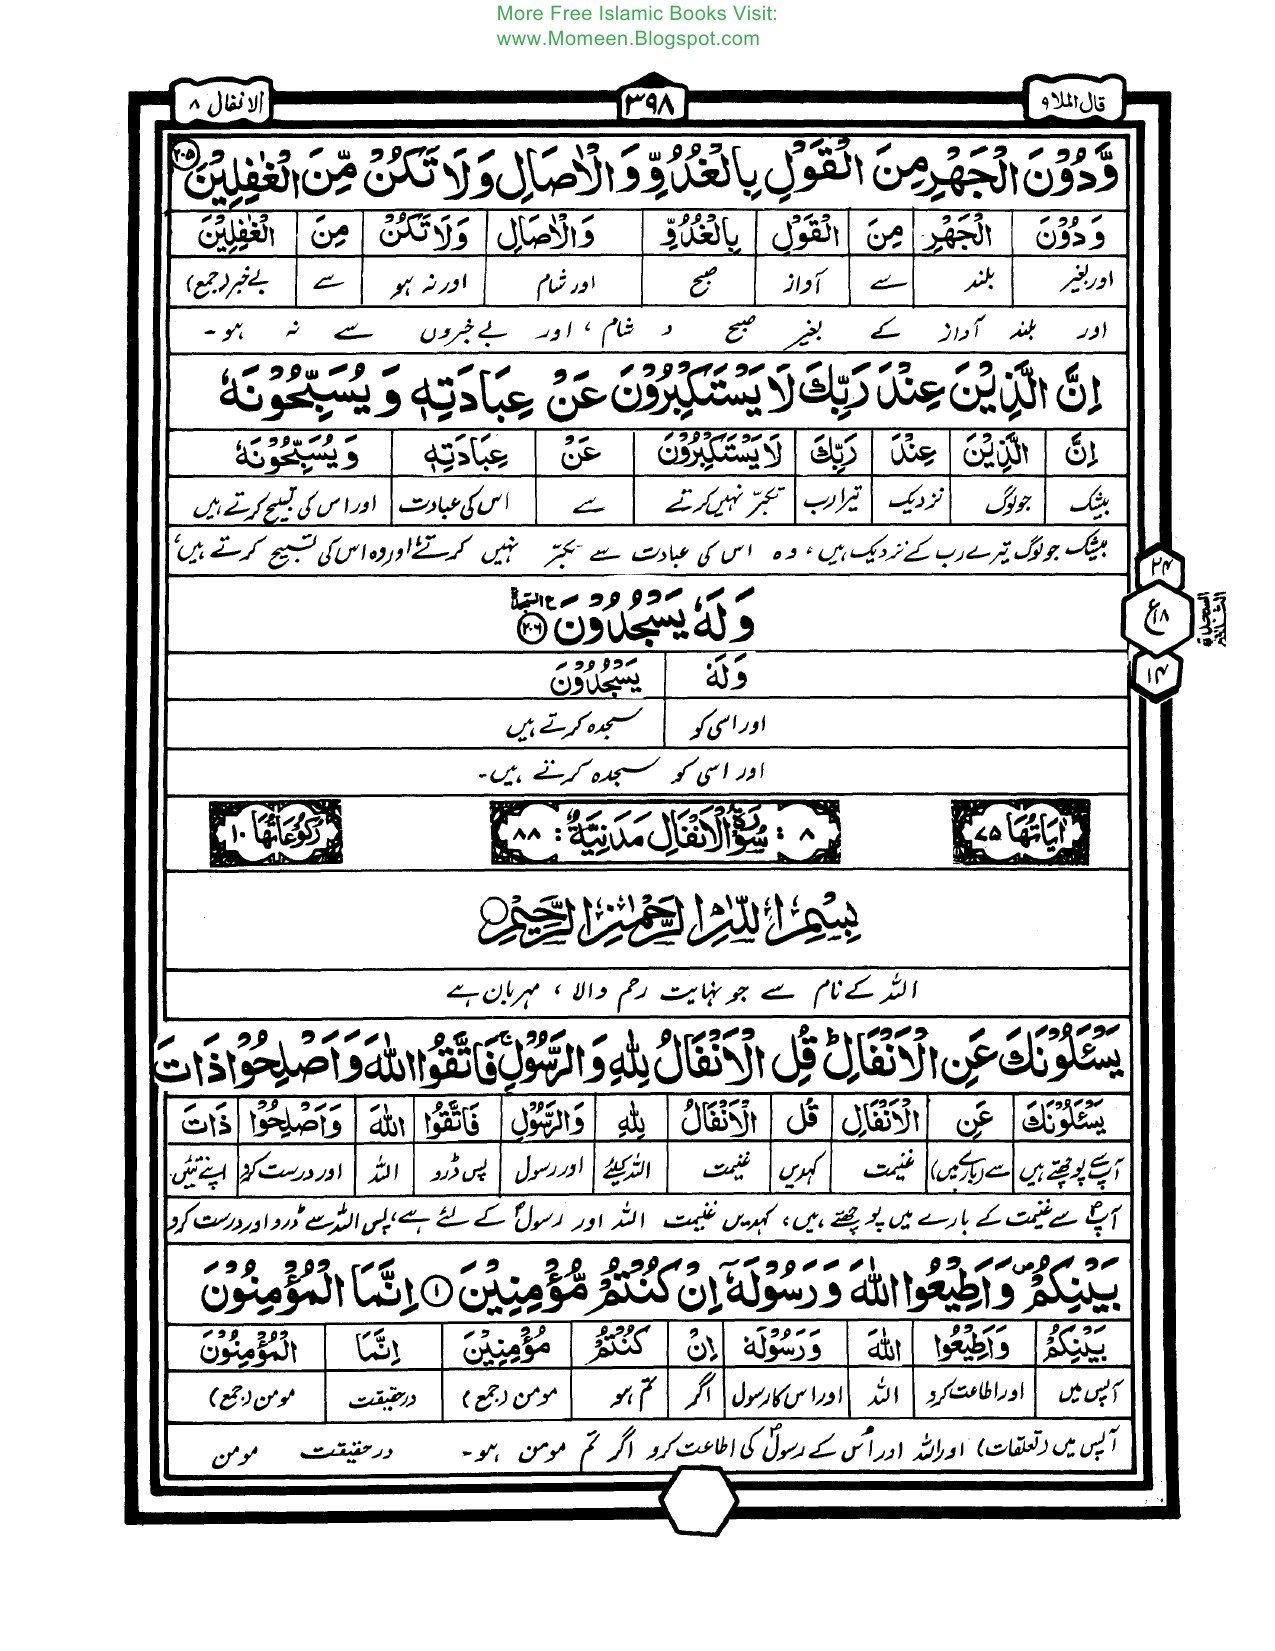 More Free Islamic Books Visit:
www.Momeen.Blogspot.com
قال الملا ۹
۳۹۸
الانفال ۸
وَّدُوْنَ الْجَهْرِ مِنَ الْقَوْلِ بِالْغُدُوِّ وَالْاٰصَالِ وَلَا تَكُنْ مِّنَ الْغٰفِلِيْنَ ۲۰۵
وَدُوْنَ الْجَهْرِ مِنَ الْقَوْلِ بِالْغُدُوِّ وَالْاٰصَالِ وَلَا تَكُنْ مِنَ الْغٰفِلِيْنَ
اور بغیر بلند سے آواز صبح اور شام اور نہ ہو سے بے خبر (جمع)
اور بلند آواز کے بغیر صبح و شام، اور بے خبروں سے نہ ہو۔
اِنَّ الَّذِيْنَ عِنْدَ رَبِّكَ لَا يَسْتَكْبِرُوْنَ عَنْ عِبَادَتِهٖ وَيُسَبِّحُوْنَهٗ
اِنَّ الَّذِيْنَ عِنْدَ رَبِّكَ لَا يَسْتَكْبِرُوْنَ عَنْ عِبَادَتِهٖ وَيُسَبِّحُوْنَهٗ
بیشک جو لوگ نزدیک تیرا رب تکبّر نہیں کرتے سے اس کی عبادت اور اس کی تسبیح کرتے ہیں
بیشک جو لوگ تیرے رب کے نزدیک ہیں، وہ اس کی عبادت سے تکبّر نہیں کرتے، اور وہ اس کی تسبیح کرتے ہیں،
وَلَهٗ يَسْجُدُوْنَ ۲۰۶
۲۴
ع ۱۸
۱۴
وَلَهٗ يَسْجُدُوْنَ
اور اسی کو سجدہ کرتے ہیں
اور اسی کو سجدہ کرتے ہیں۔
اٰيَاتُهَا ۷۵
۸ : سُوْرَةُ الْاَنْفَالِ مَدَنِيَّةٌ : ۸۸
رُكُوْعَاتُهَا ۱۰
بِسْمِ اللّٰهِ الرَّحْمٰنِ الرَّحِيْمِ
اللہ کے نام سے جو نہایت رحم والا، مہربان ہے
يَسْـَٔلُوْنَكَ عَنِ الْاَنْفَالِ ؕ قُلِ الْاَنْفَالُ لِلّٰهِ وَالرَّسُوْلِ ۚ فَاتَّقُوا اللّٰهَ وَاَصْلِحُوْا ذَاتَ
يَسْـَٔلُوْنَكَ عَنِ الْاَنْفَالِ قُلِ الْاَنْفَالُ لِلّٰهِ وَالرَّسُوْلِ فَاتَّقُوا اللّٰهَ وَاَصْلِحُوْا ذَاتَ
آپ سے پوچھتے ہیں سے (بارے میں) غنیمت کہدیں غنیمت اللہ کیلئے اور رسول پس ڈرو اللہ اور درست کرو اپنے تئیں
آپؐ سے غنیمت کے بارے میں پوچھتے ہیں، کہدیں غنیمت اللہ اور رسولؐ کے لئے ہے، پس اللہ سے ڈرو اور درست کرو
بَيْنِكُمْ ۪ وَاَطِيْعُوا اللّٰهَ وَرَسُوْلَهٗٓ اِنْ كُنْتُمْ مُّؤْمِنِيْنَ ۱ اِنَّمَا الْمُؤْمِنُوْنَ
بَيْنِكُمْ وَاَطِيْعُوا اللّٰهَ وَرَسُوْلَهٗ اِنْ كُنْتُمْ مُؤْمِنِيْنَ اِنَّمَا الْمُؤْمِنُوْنَ
آپس میں اور اطاعت کرو اللہ اور اس کا رسول اگر تم ہو مومن (جمع) درحقیقت مومن (جمع)
آپس میں (تعلقات) اور اللہ اور اُس کے رسولؐ کی اطاعت کرو اگر تم مومن ہو۔ درحقیقت مومن